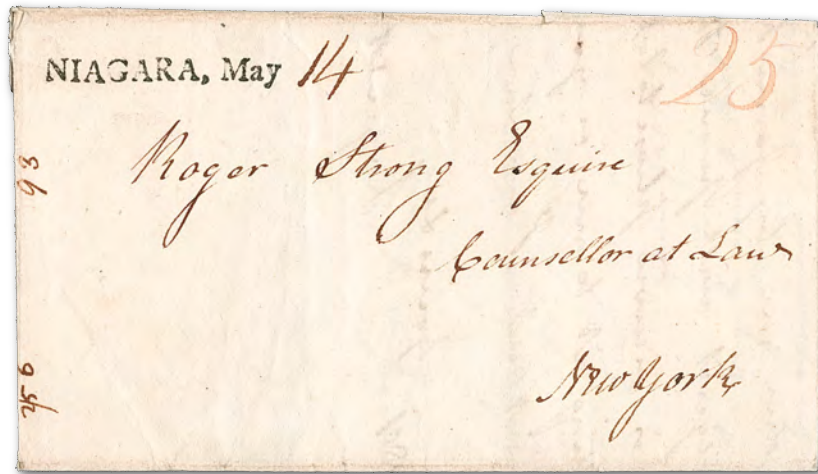 NIAGARA, May 14
25
Roger Strong Esquire
Counsellor at Law
New York
93
256